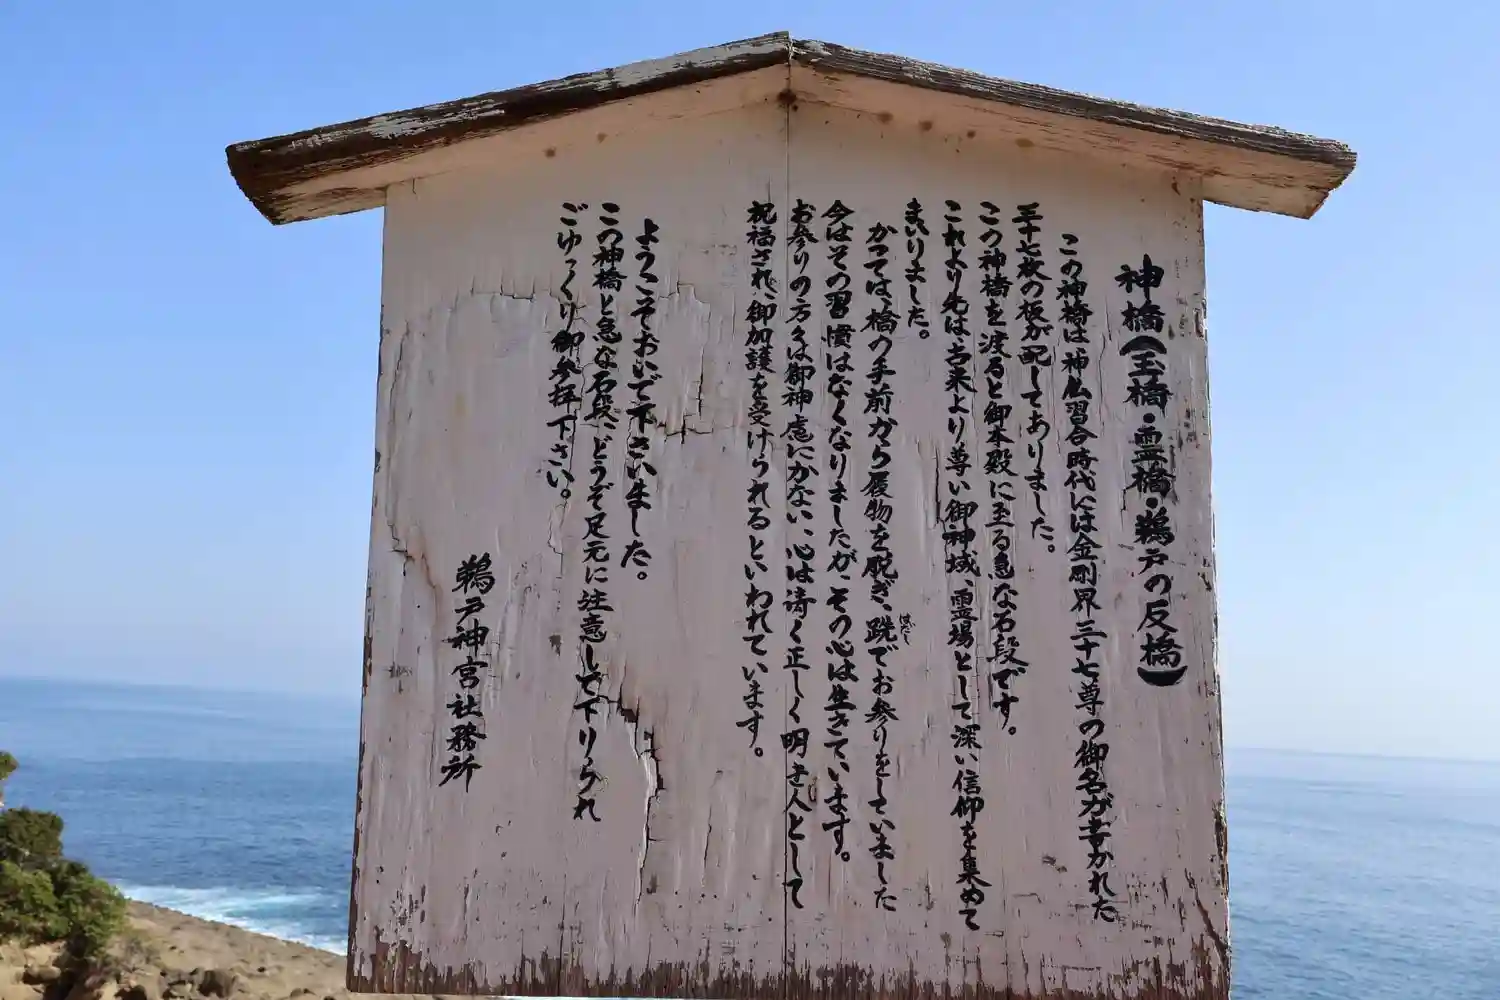 神橋(玉橋・霊橋・鵜戸の反橋)
この神椅は神仏習合時代には金剛界三十七尊の御名が書かれた
三十七枚の板が配してありました。
この神橋を渡ると御本殿に至る急な石段です。
これより先は、古来より尊い御神域、霊場として深い信仰を集めて
まいりました。
かつては、橋の手前から履物を脱ぎ、跣でお参りをしていました
はだし
今はその習慣はなくなりましたが、その心は生きています。
お参りの方々は御神慮にかない、心は清く正しく明き人として
祝福され、御加護を受けられるといわれています。
ようこそおいで下さいました。
この神橋と急な石段、どうぞ足元に注意して下りられ
ごゆっくり御参拝下さい。
鵜戸神宮社務所